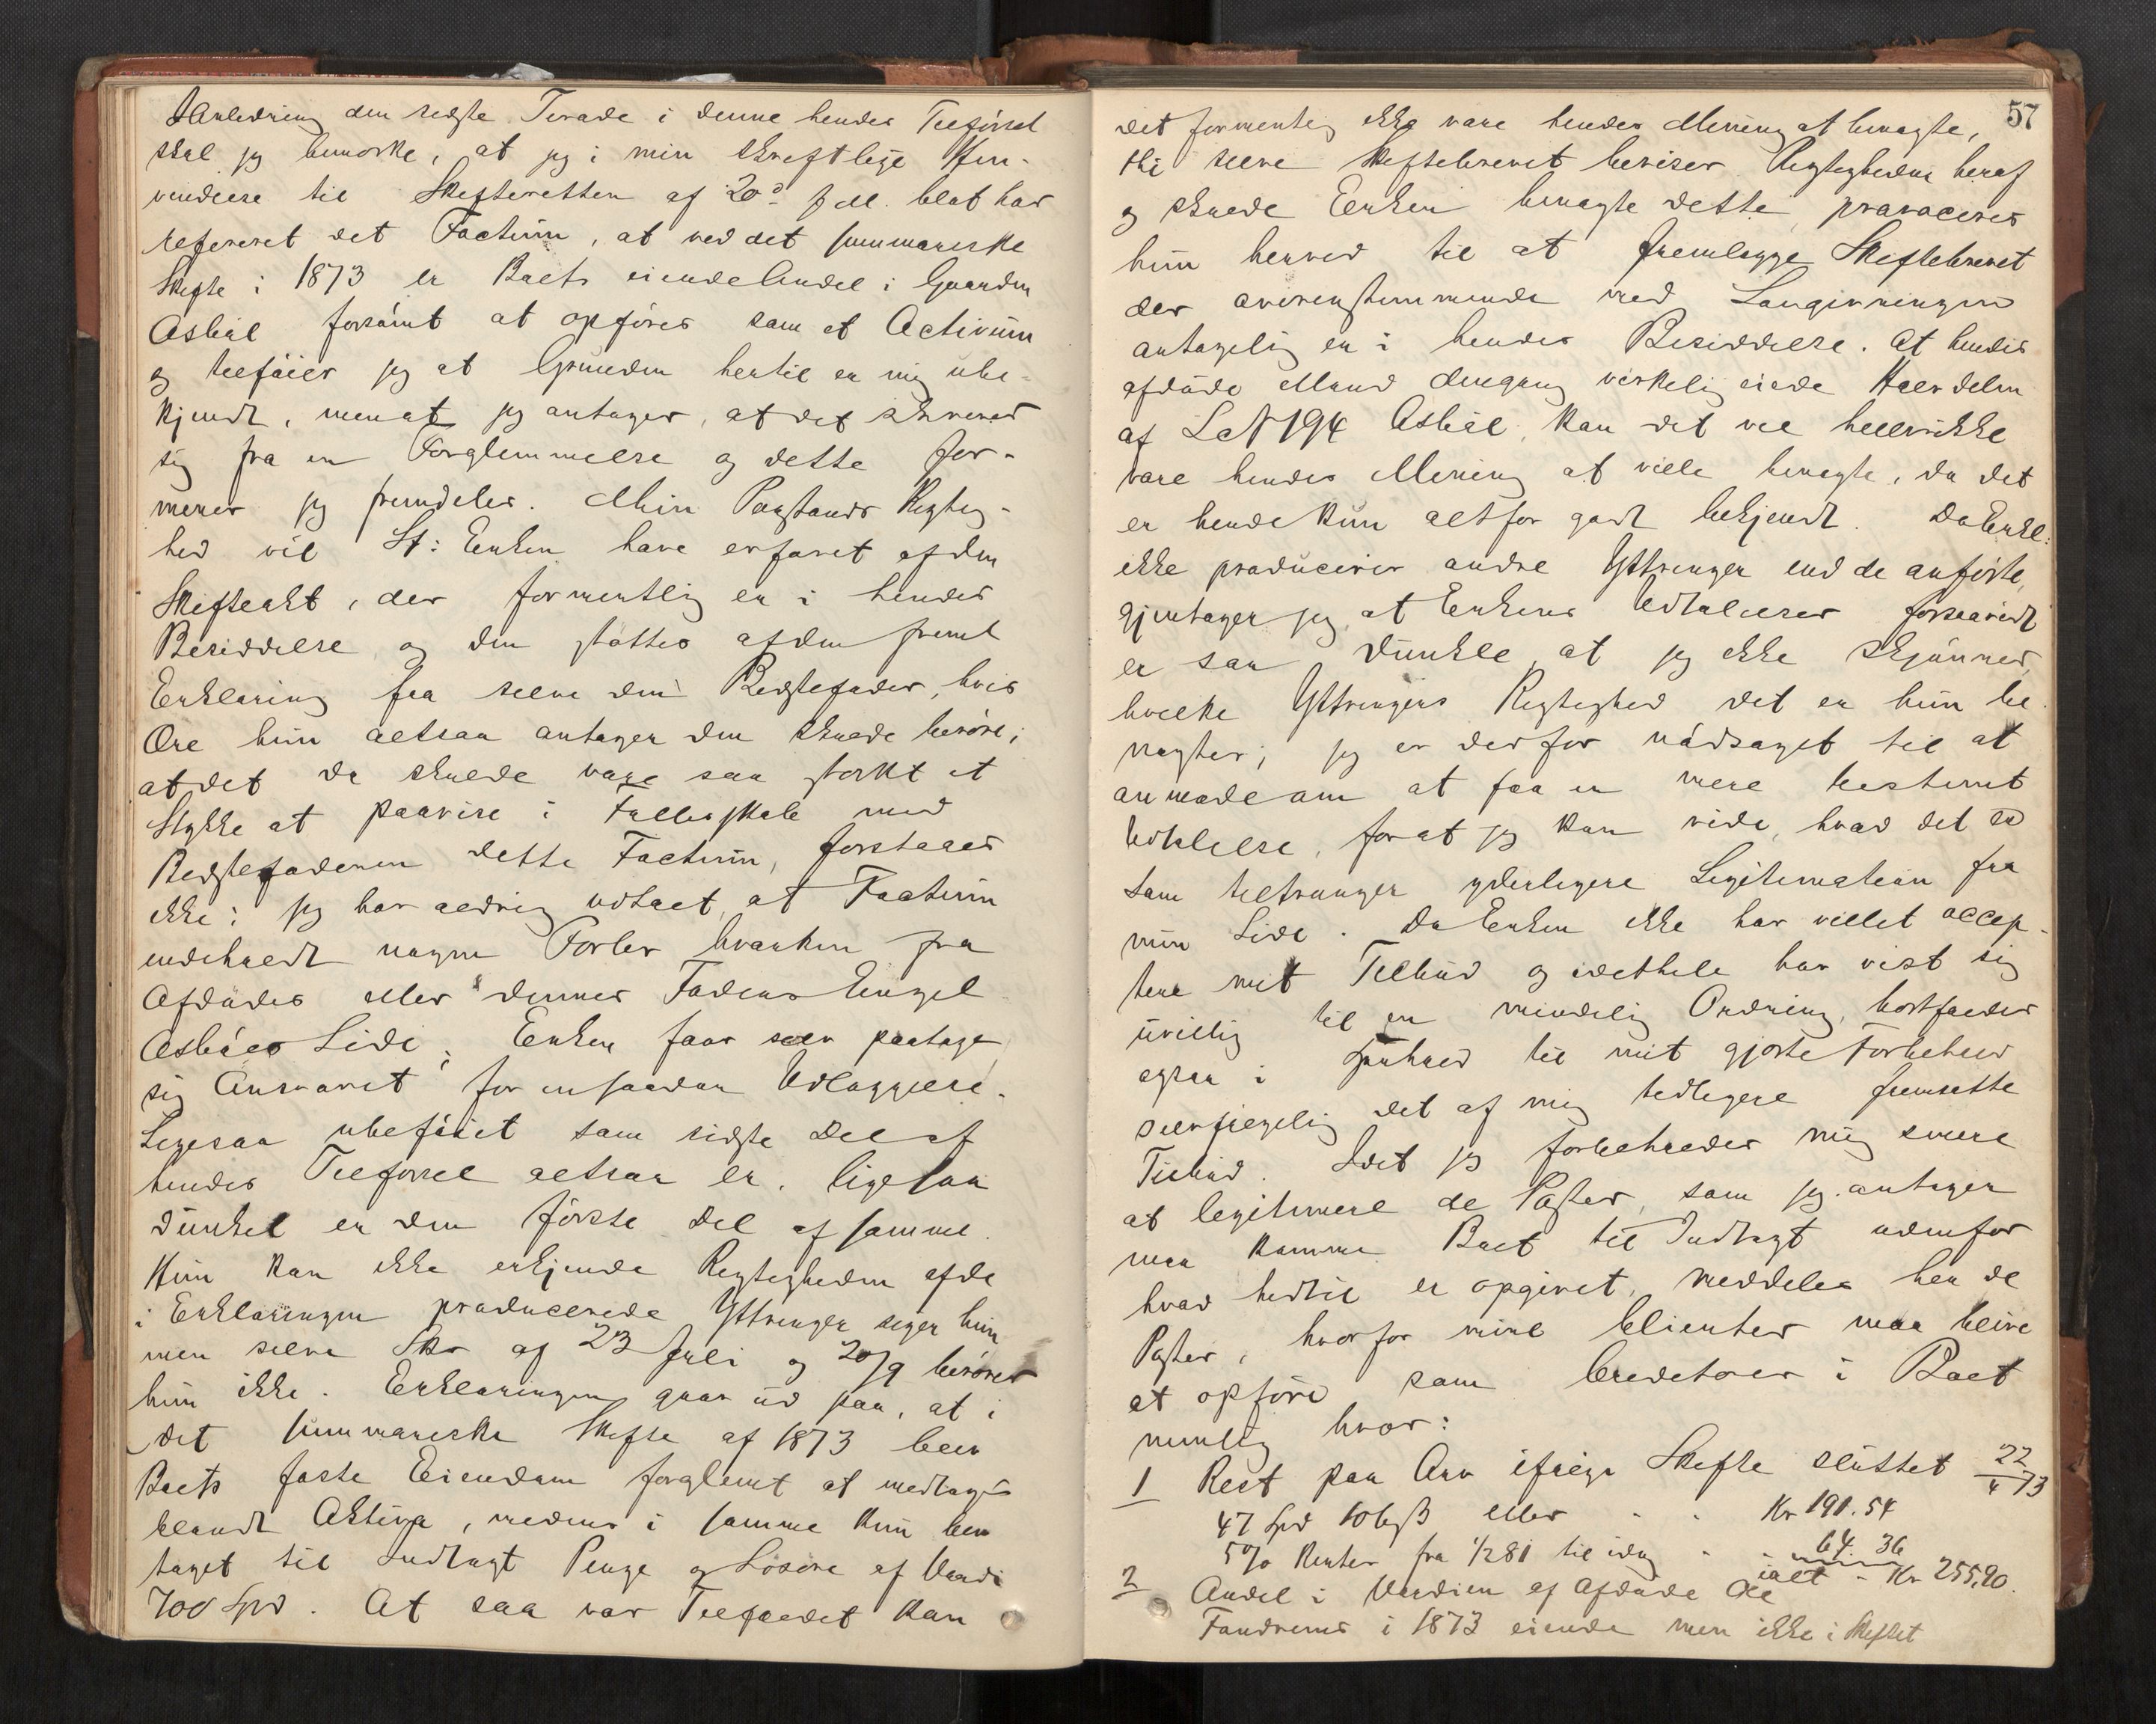 Anledning den sidste Tirade i denne hendes Tilførsel
skal jeg bemærke, at jeg i min skriftlige Hen-
vendelse til Skifteretten af 20de f.M. blot har
refereret det Factum, at ved det summariske
Skifte i 1873 er Boets eiende Andel i Gaarden
Asbøl forsømt at opføres som et Activum
og tilføier jeg at Grunden hertil er mig ube-
kjendt, men at jeg antager, at det skriver
sig fra en Forglemmelse og dette for-
mener jeg fremdeles. Min Paastands Rigtig-
hed vil St: Enken have erfaret af den
Skifteakt, der formentlig er i hendes
Besiddelse og den støttes af den freml
Erklæring fra selve den Bedstefader, hvis
Øre hun altsaa antager den skulde berøre;
at det da skulde være saa stærkt et
Stykke at paavise i Fællesskab med
Bedstefaderen dette Factum, forstaaes
ikke; jeg har aldrig udtalt, at Factum
indeholdt nogen Forbr hverken fra
Afdødes eller dennes Faders Engel
Asbøls Side; Enken faar selv paatage
sig Ansvaret for en saadan Udlæggelse.
Ligesaa ubeføiet som sidste Del af
hendes Tilførsel altsaa er, ligesaa
dunkel er den første Del af samme.
Hun kan ikke erkjende Rigtigheden af de
i Erklæringen producerede Yttringer siger hun
men selve Skr af 23 Juli og 20/9 berører
hun ikke. Erklæringen gaar ud paa, at i
det summariske Skifte af 1873 blev
Boets faste Eiendom forglemt at medtages
blandt Aktiva, medens i samme kun blev
taget til Indtægt Penge og Løsøre af Værdi
700 Spd. At saa var Tilfældet kan
57
det formentlig ikke være hendes Mening at benægte,
thi selve Skiftebrevet beviser Rigtigheden heraf
og skulde Enken benægte dette, provoceres
hun herved til at fremlægge Skiftebrevet
der overenstemmende med Lovgivningen
antagelig er i hendes Besiddelse. At hendes
afdøde Mand dengang virkelig eiede Halvdelen
af LN 194 Asbøl, kan det vel heller ikke
være hendes Mening at ville benægte, da det
er hende kun altfor godt bekjendt. Da Enk:
ikke producerer andre Yttringer end de anførte,
gjentager jeg, at Enkens Udtalelser forsaavidt
er saa dunkle, at jeg ikke skjønner,
hvilke Yttringers Rigtighed det er hun be
nægter; jeg er derfor nødsaget til at
anmode om at faa en mere bestemt
Udtalelse, forat jeg kan vide, hvad det er
som tiltrænger yderligere Legitimation fra
min Side. Da Enken ikke har villet accep-
tere mit Tilbud og idethele har vist sig
uvillig til en mindelig Ordning, bortfalder
ogsaa i Henhold til mit gjorte Forbehold
selvfølgelig det af mig tidligere fremsatte
Tilbud. Idet jeg forbeholder mig senere
at legitimere de Poster, som jeg antager
maa komme Boet til Indtægt udenfor
hvad hidtil er opgivet, meddeles her de
Poster, hvorfor mine Clienter maa blive
at opføre som Creditorer i Boet
nemlig hvor:
1 Rest paa Arv ifølge Skifte sluttet 22/4 73
47 Spd 106 ß eller - - Kr 191.54
5% Renter fra 1/2 81 til idag - - 64.36
ialt - Kr 255,90.
2 Andel i Værdien af Afdøde Ole
Fandrems i 1873 eiende men ikke i Skiftet